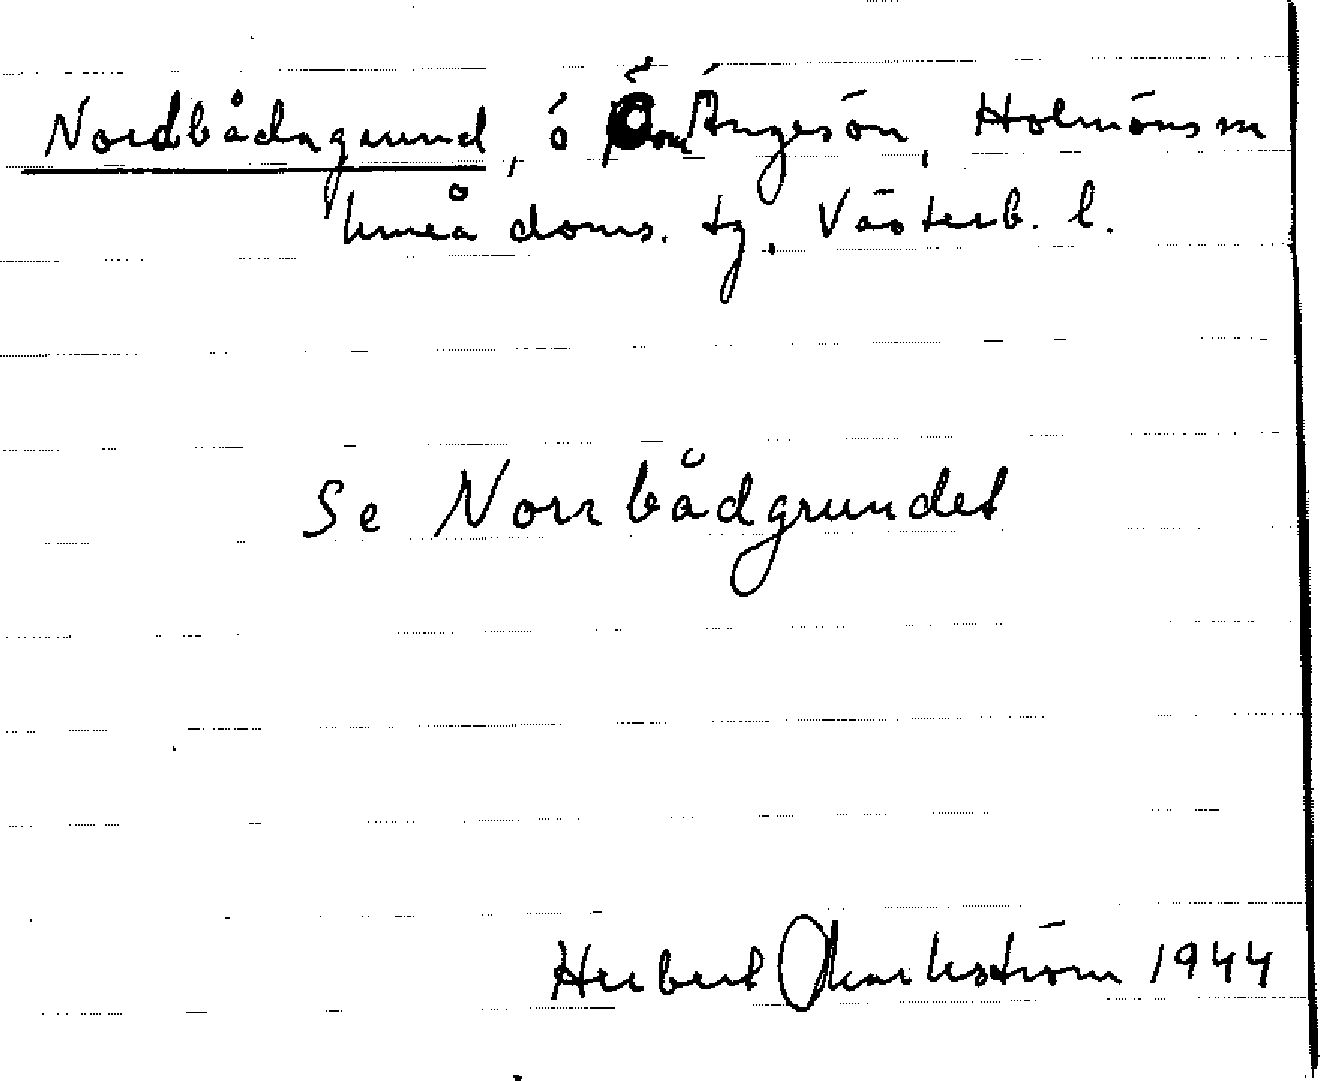 Nordbådagrund, ö Ö om Ängesön, Holmöns sn
Umeå doms. tg. Västerb. l.
Se Norrbådgrundet
Herbert Markström 1944